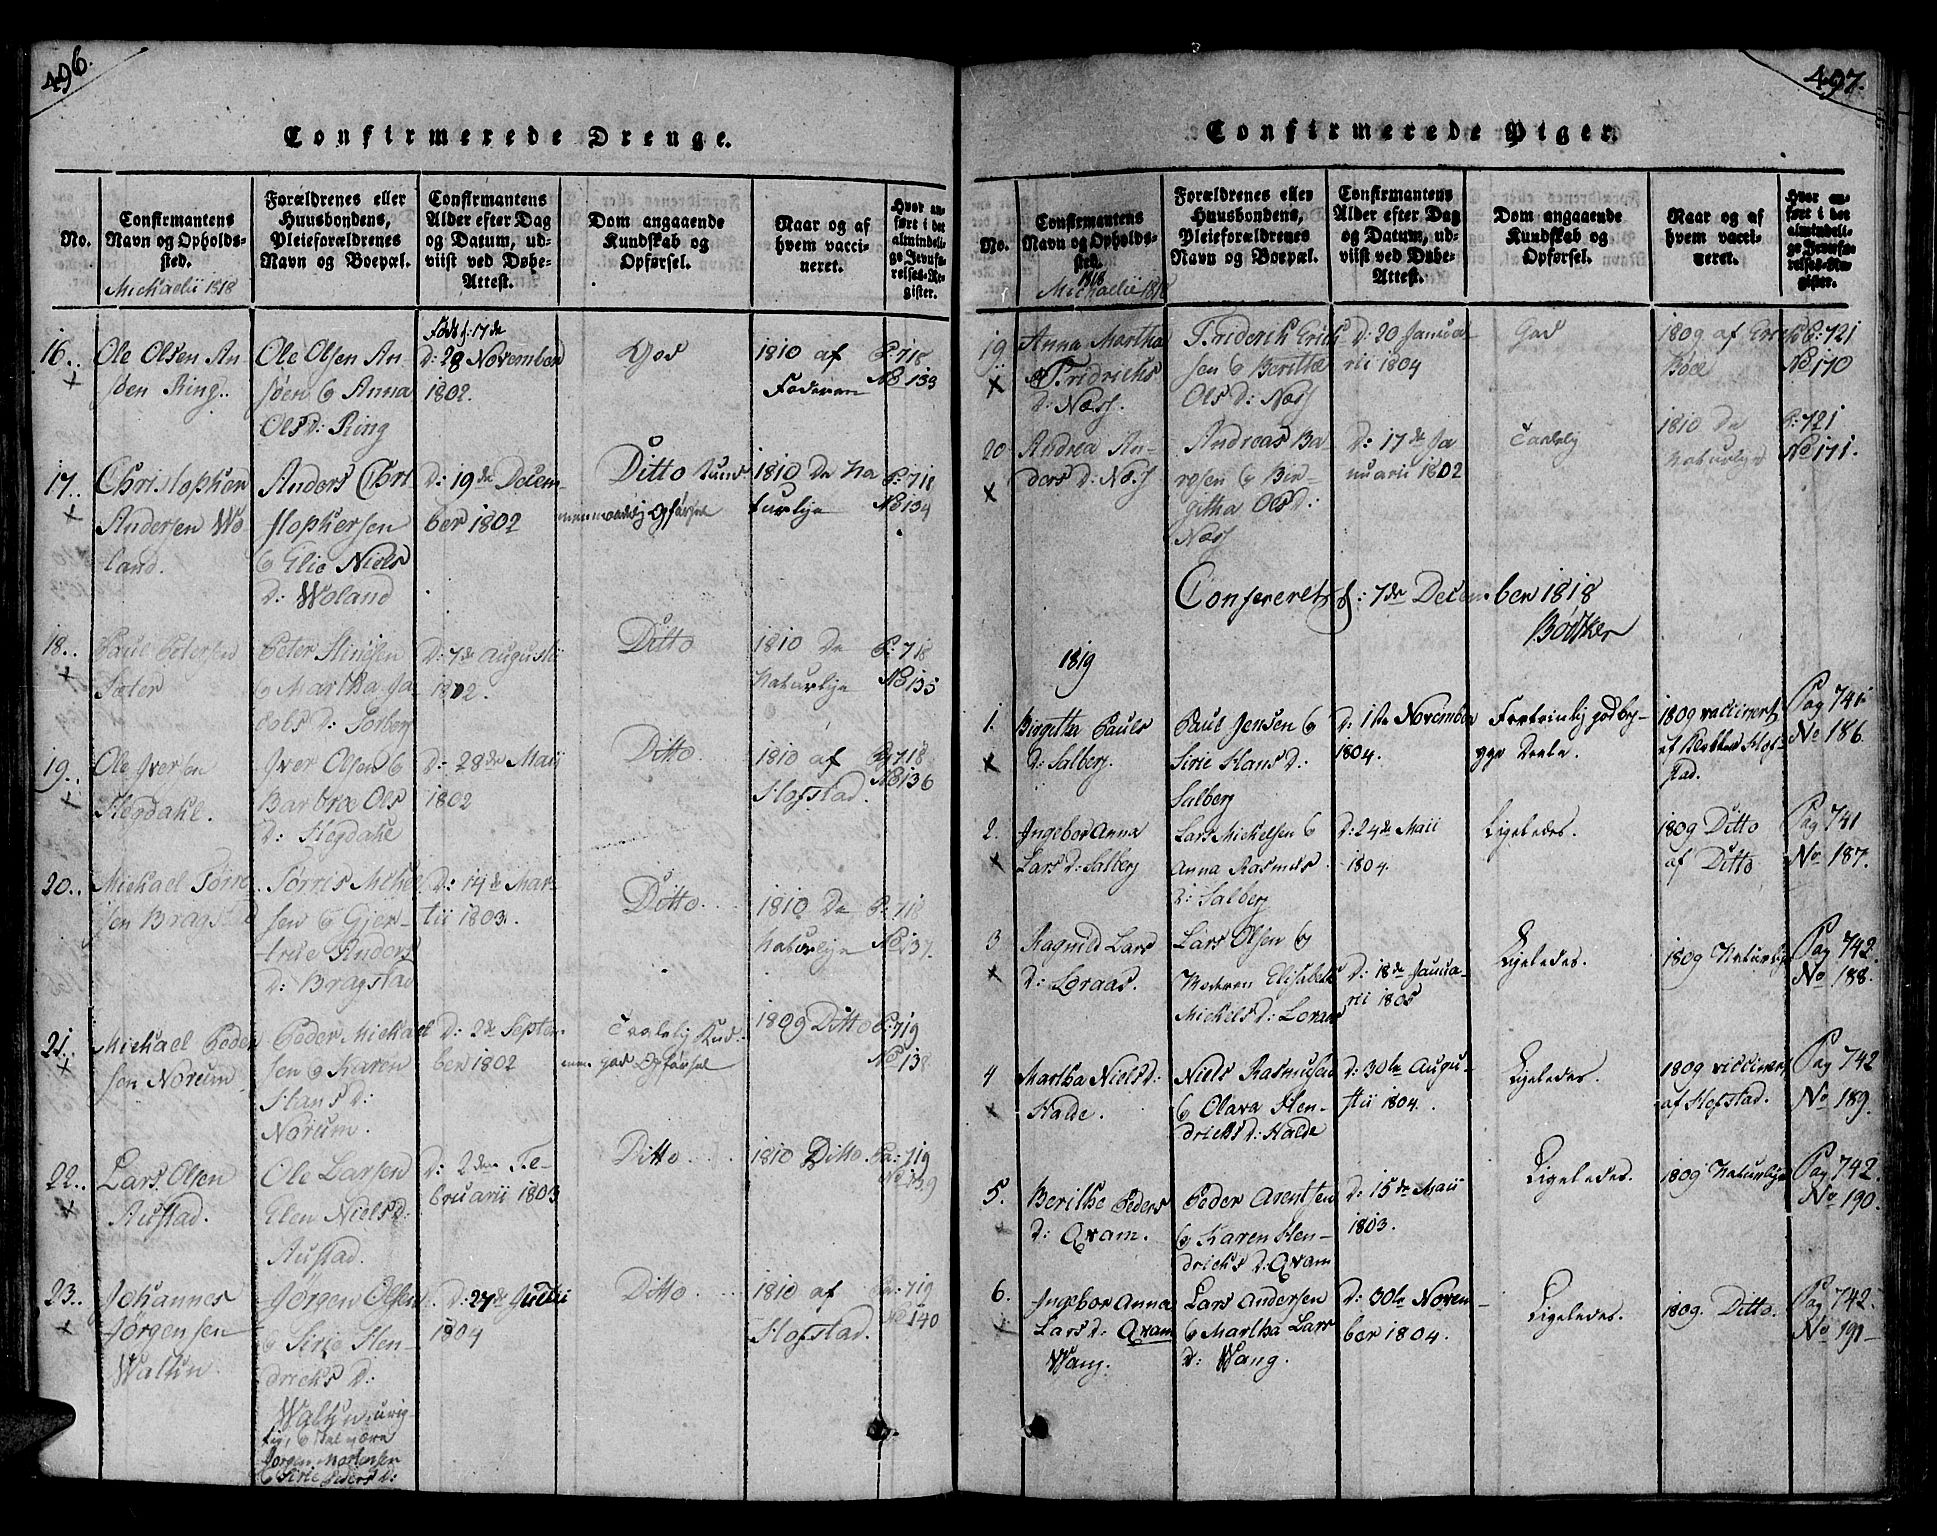 496.
Confirmerede Drenge.
No.
Confirmantens
Navn og Opholds-
sted.
Michaelii 1818
Forældrenes eller
Huusbondens,
Pleieforældrenes
Navn og Boepæl.
Confirmantens
Alder efter Dag
og Datum, ud-
viist ved Døbe-
Attest.
Dom angaaende
Kundskab og
Opførsel.
Naar og af
hvem vacci-
neret.
Hvor an-
ført i det
almindeli-
ge Jevnfø-
relses-Re-
gister.
16..
Ole Olsen An
Ring..
Ole Olsen An
6 Anna
Ols D: Ring
Født d: 17de
D: 28 November
1802.
God
1810 af
Faderen
P: 718
No 133
17..
Christopher
Andersen Wo
land.
Anders Chri
stophersen
6 Elie Niels
D: Woland
D: 19de Decem-
ber 1802
Ditto Kund
Opførsel
1810 De Na
turlige
P: 718
No 134
18..
Paul Petersen
Peter
6 Martha Ja
cobs D:
D: 7de Augustii
1802.
Ditto
1810 De
Naturlige
P: 718
No 135
19..
Ole Iversen
Hegdahl.
Iver Olsen 6
Barbroe Ols
D: Hegdahl
D: 28de Maii
1802
Ditto
1810 af
Hofstad.
P: 718
No 136
20..
Michael Tørri
sen Bragstad
Tørris Miche
sen 6 Gjer-
true Anders
D: Bragstad
D: 14de Mar-
tii 1803.
Ditto.
1810 De
Naturlige
P: 718
No 137.
21..
Michael Peder
sen Norum
Peder Michael
sen 6 Karen
Hans D:
Norum.
D: 2de Septem
ber 1802
Taalelig Kud.
men god Opførsel
1809 Ditto
P: 719
No 138
22..
Lars Olsen
Austad.
Ole Larsen
Elen Niels D:
Austad.
D: 2den Fe-
bruarii 1803
Ditto
1810 Ditto.
Pa: 719
No 139
23..
Johannes
Jørgensen
Jørgen Olsen
6 Sirie Hen-
drichs D:
urig-
tig,
Jørgen Mortensen
6 Sirie Peders D:
D: 27de Julii
1804
Ditto
1810 af
Hofstad.
Pa: 719
No 140
497.
Confirmerede Piger.
No.
Confirmantens
Navn og Opholds-
sted.
1818
Michaelii 1818
Forældrenes eller
Huusbondens,
Pleieforældrenes
Navn og Boepæl.
Confirmantens
Alder efter Dag
og Datum, ud-
viist ved Døbe-
Attest.
Dom angaaende
Kundskab og
Opførsel.
Naar og af
hvem vacci-
neret.
Hvor an-
ført i det
almindeli-
ge Jevnfø-
relses-Re-
gister.
19
Anna Martha
Fridrichs
D: Næss.
Friderich Erich
sen 6 Berithe
Ols D: Næss
D: 20 Janua-
rii 1804
God
1809 af Erich
P: 721
No 170
20
Andrea An-
ders D: Næss
Andreas Ba
sen 6 Bir-
githa Ols D:
Næss
D: 17de Ja
nuarii 1802
Taalelig
1810 De
Naturlige
P: 721
No 171.
Confereret d: 7de December 1818
1819
1.
Birgitha Pauls
D: Salberg.
Paul Jensen 6
Sirie Hans D:
Salberg
D: 1ste November
1804.
Fortrinlig god
1809 vaccineret
af Hof-
stad.
Pag 741
No 186
2.
Ingebor Anna
Lars D: Salberg
Lars Michelsen 6
Anna Rasmus
D: Salberg
D: 24de Maii
1804.
Ligeledes.
1809 Ditto
af Ditto
Pag 741
No 187.
3
Ragnild Lars
D: Loraas.
Lars Olsen 6
Moderen Elisabeth
Michels D: Loraas
D: 18de Janua-
rii 1805
Ligeledes.
1809 Naturlige
Pag 742.
No 188.
4
Martha Niels D:
Halde.
Niels Rasmusen
6 Olava Hen-
drichs D: Halde
D: 30te Augu-
stii 1804.
Ligeledes.
1809
af Hofstad.
Pag 742
No 189.
5.
Berithe Peders
D: Qvam.
Peder Arentsen
6 Karen Hen-
drichs D: Qvam
D: 15de Maii
1803.
Ligeledes.
1809 Naturlige
Pag 742.
No 190.
6.
Ingebor Anna
Lars D: Qvam
Wang.
Lars Andersen
6 Martha Lars
D: Wang.
D: 30te Novem
ber 1804.
Ligeledes.
1809. Ditto.
Pag 742.
No 191